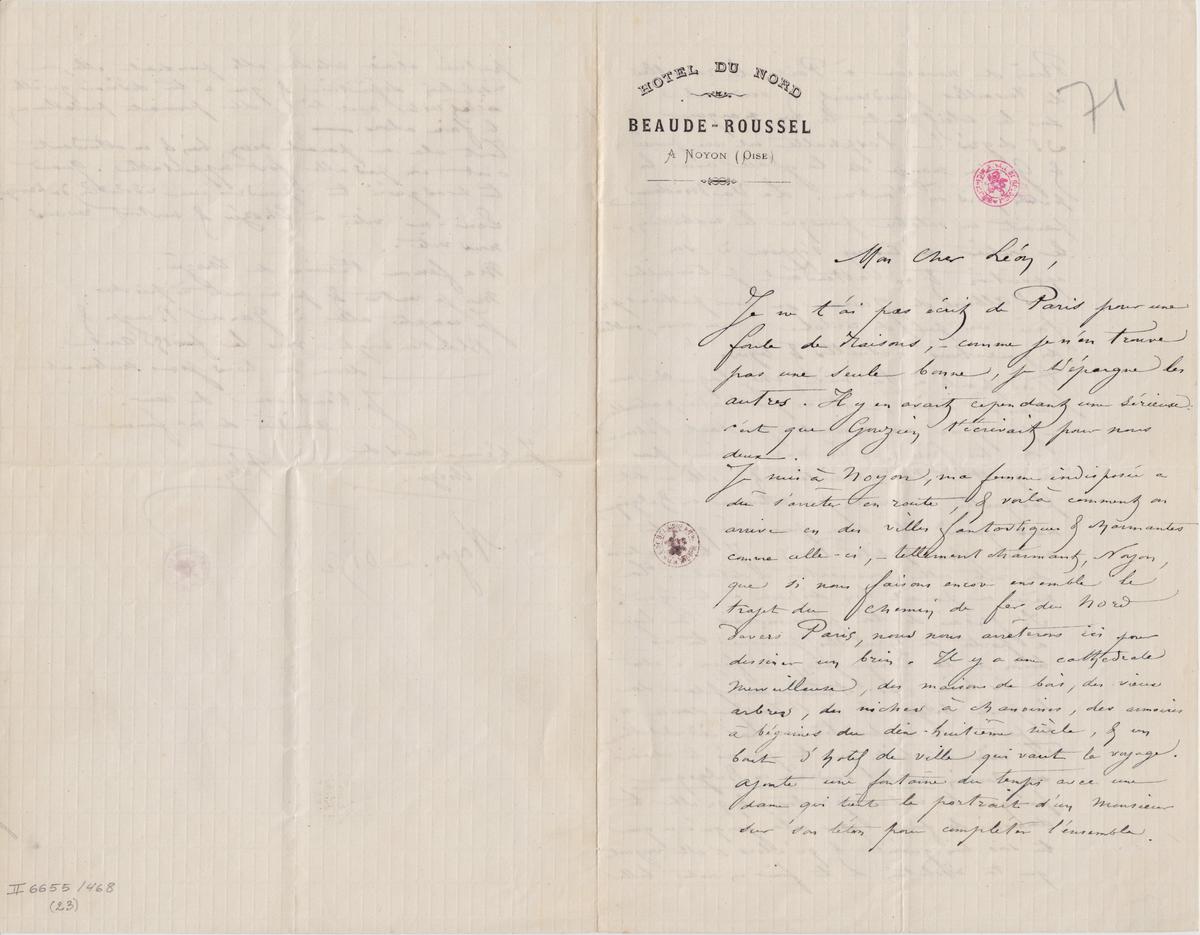 HOTEL DU NORD
BEAUDE-ROUSSEL
A NOYON (OISE)
71
Mon Cher Léon,
Je ne t'ai pas écrit de Paris pour une
foule de raisons, – comme je n'en trouve
pas une seule bonne, je t'épargne les
autres. Il y en avait cependant une sérieuse
c'est que Gouzien t'écrivait pour nous
deux.
Je suis à Noyon, ma femme indisposée a
dû s'arrêter en route, & voilà comment on
arrive en des villes fantastiques & charmantes
comme celle-ci, – tellement charmant, Noyon,
que si nous faisons encore ensemble le
trajet du chemin de fer du Nord
vers Paris, nous nous arrêterons ici pour
dessiner un brin. Il y a une cathédrale
merveilleuse, des maisons de bois, des vieux
arbres, des niches à chanoines, des armoires
à béguines du dix-huitième siècle, & un
bout d'hotel de ville qui vaut le voyage.
ajoute une fontaine du temps avec une
dame qui tient le portrait d'un Monsieur
sur son téton pour compléter l'ensemble.
II 6655/468
(23)